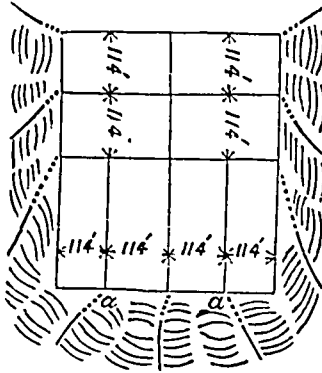 114' 114'
114' 114'
114' 114' 114' 114'
a a